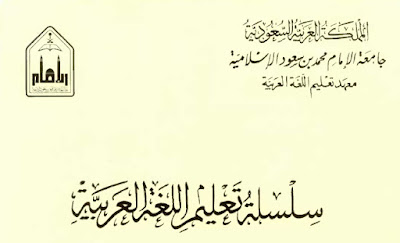 المملكة العربية السعودية
جامعة الإمام محمد بن سعود الإسلامية
معهد تعليم اللغة العربية
سلسلة تعليم اللغة العربية